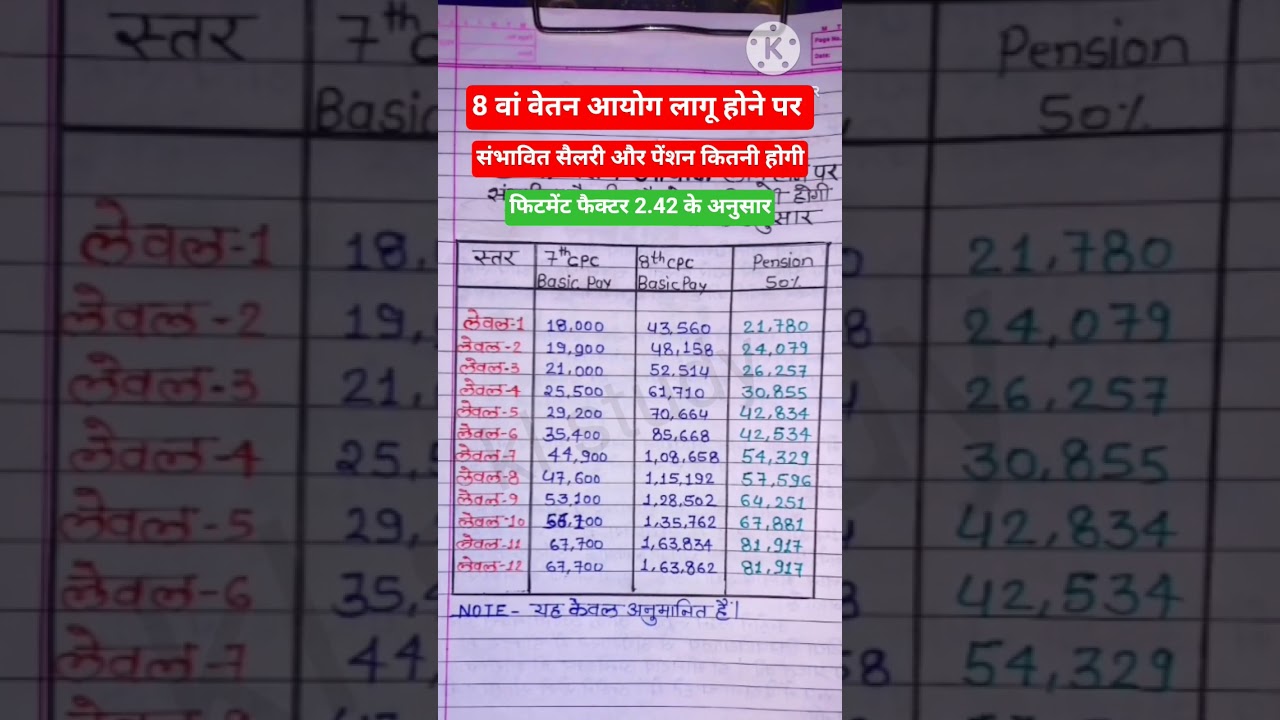 8 वां वेतन आयोग लागू होने पर
संभावित सैलरी और पेंशन कितनी होगी
फिटमेंट फैक्टर 2.42 के अनुसार
स्तर 7th CPC Basic Pay 8th CPC Basic Pay Pension 50%
लेवल-1 18,000 43,560 21,780
लेवल-2 19,900 48,158 24,079
लेवल-3 21,000 52,514 26,257
लेवल-4 25,500 61,710 30,855
लेवल-5 29,200 70,664 42,834
लेवल-6 35,400 85,668 42,534
लेवल-7 44,900 1,08,658 54,329
लेवल-8 47,600 1,15,192 57,596
लेवल-9 53,100 1,28,502 64,251
लेवल-10 56,100 1,35,762 67,881
लेवल-11 67,700 1,63,834 81,917
लेवल-12 67,700 1,63,862 81,917
NOTE- यह केवल अनुमानित है।